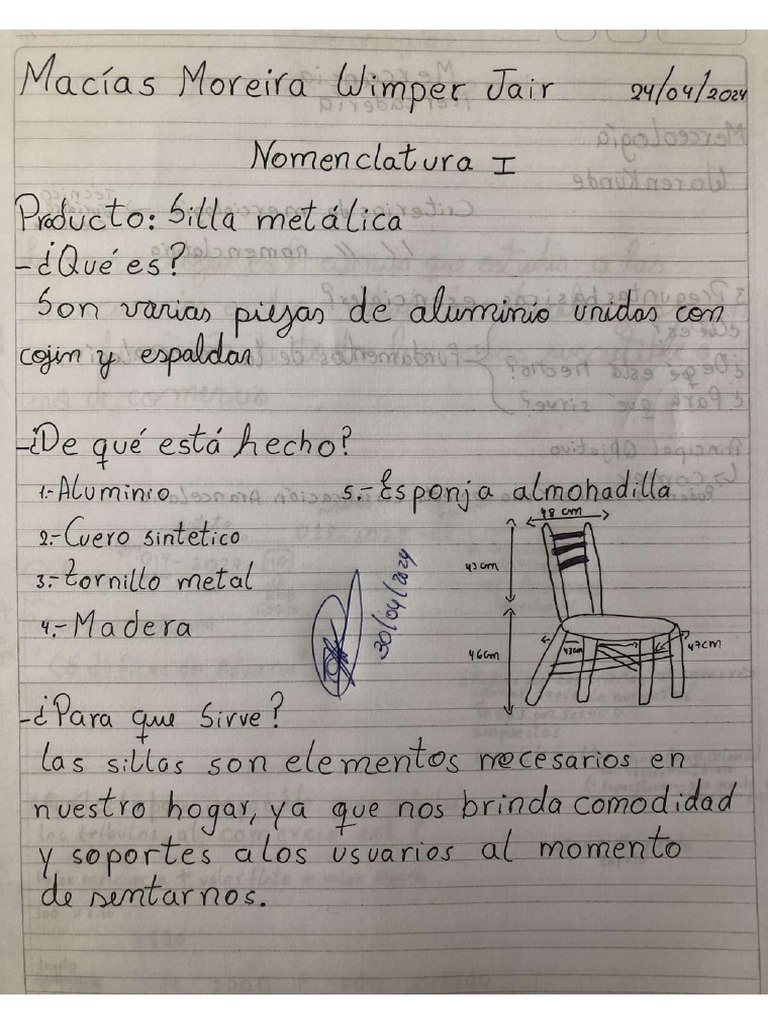 Macías Moreira Wimper Jair 24/04/2024
Nomenclatura I
Producto: Silla metálica
-¿Qué es?
Son varias piezas de aluminio unidas con
cojin y espaldar
-¿De qué está hecho?
1.-Aluminio 5.-Esponja almohadilla
2.-Cuero sintetico
3.-tornillo metal
4.-Madera
48 cm
43cm
46cm
43cm
47cm
30/04/2024
-¿Para que Sirve?
las sillas son elementos necesarios en
nuestro hogar, ya que nos brinda comodidad
y soportes a los usuarios al momento
de sentarnos.